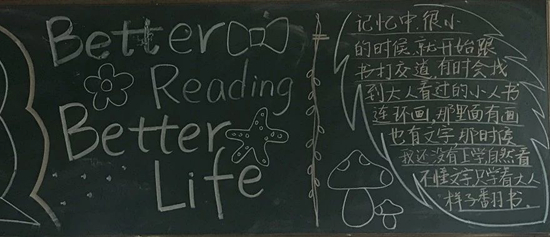 Better
Reading
Better
Life
记忆中，很小
的时候，就开始跟
书打交道，有时会找
到大人看过的小人书
连环画，那里面有画
也有文字，那时候
我还没有上学，自然看
不懂文字，只学着大人
样子翻书。